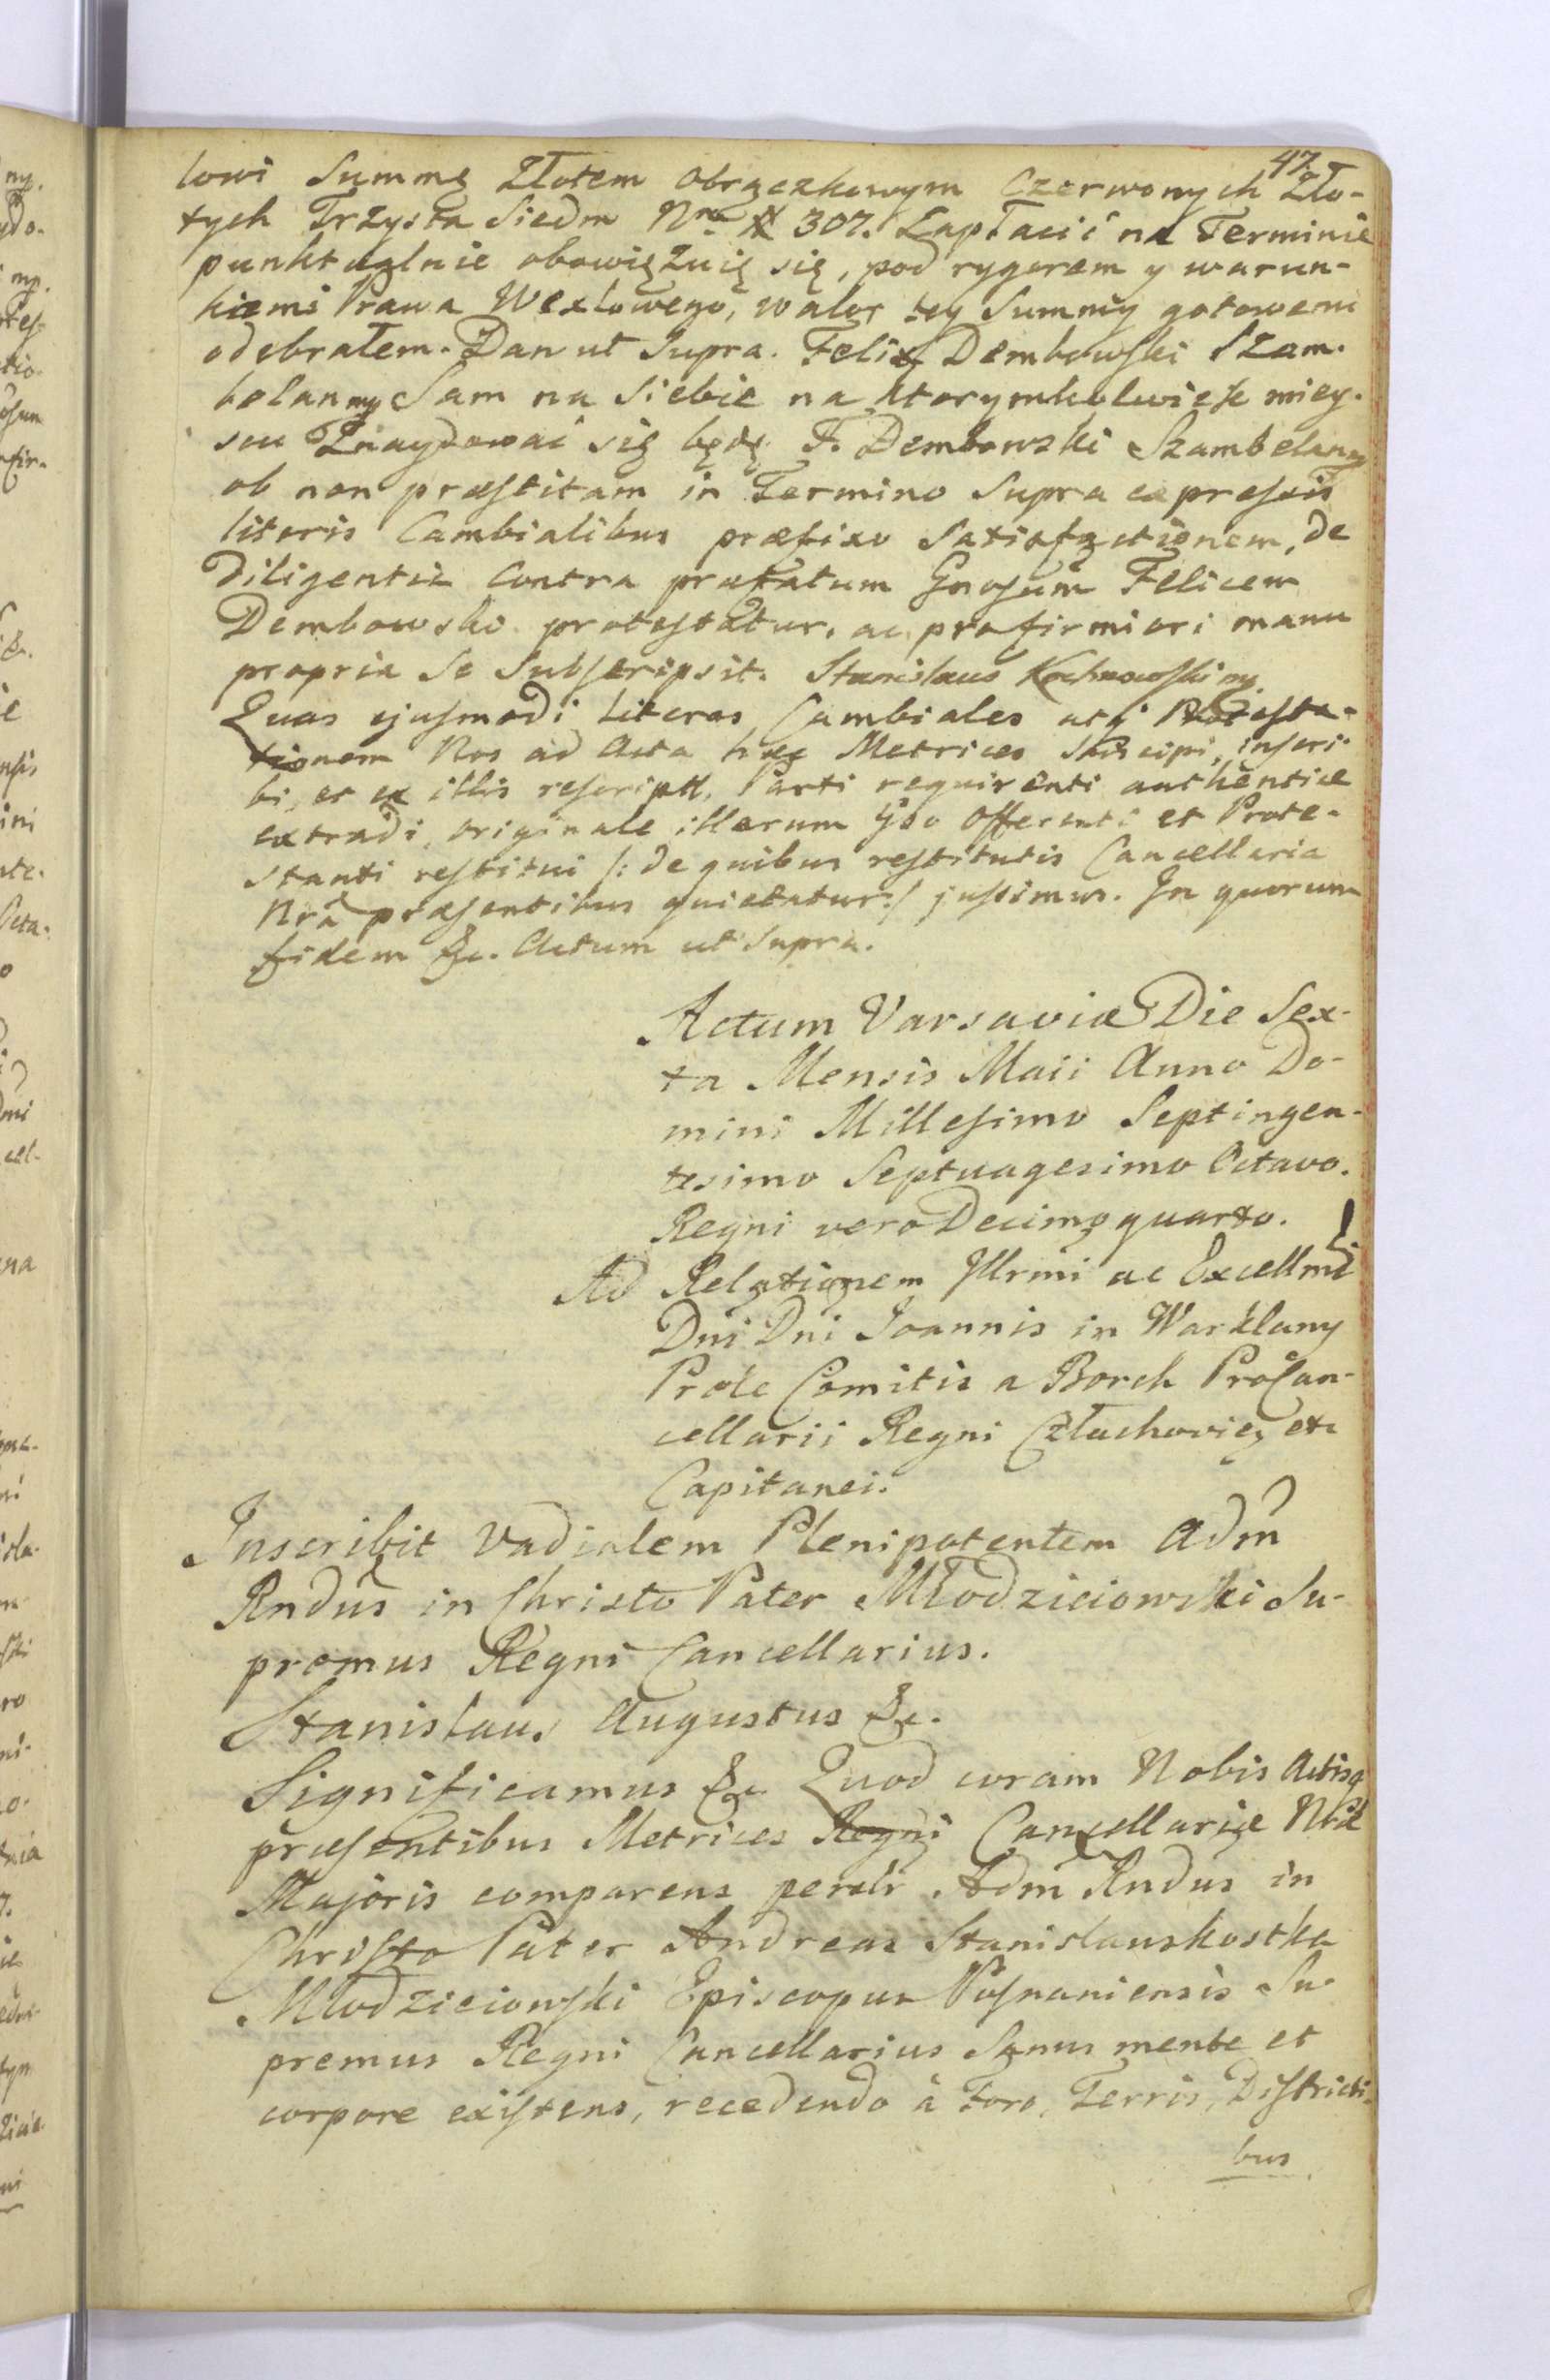 47
lowi Summę Złotem obrączkowym Czerwonych Zło-
tych Trzysta Siedm Nro # 307. Zapłacić na Terminie
punktualnie obowięzuię się, pod rygorem y warun-
kiemi Prawa Wexlowego, walor tey Summy gotowemi
odebrałem. Dan ut Supra. Felix Dembowski Szam-
belan mp Sam na Siebie na ktorymkolwiek miey-
scu Znaydować się będę F. Dembowski Szambelan mp
ob non præstitam in Termino Supra expressis
literis Cambialibus præfixo Satisfactionem, de
Diligentia Contra præfatum Gnosum Felicem
Dembowski protestatur, ac pro firmiori manu
propria Se Subscripsit. Stanislaus Kochnowski mp.
Quas ejusmodi Literas Cambiales atq Protesta-
tionem Nos ad Acta hæc Metrices Suscipi, inscri-
bi, et ex illis rescriptt. Parti requirenti authentice
extradi, originale illarum Gso Offerenti et Prote-
stanti restitui /: de quibus restitutis Cancellaria
Nrã præsentibus quietatur:/ jussimus. In quorum
fidem &c. Actum ut Supra.
Actum Varsaviæ Die Sex-
ta Mensis Maii Anno Do-
mini Millesimo Septingen-
tesimo Septuagesimo Octavo.
Regni vero Decimo quarto.
Ad Relationem Illrmi ac Excellmi
Dni Dni Joannis in Warklany
Prele Comitis a Borch ProCan-
cellarii Regni Człuchovien etc
Capitanei.
Inscribit Vadialem Plenipotentem Adm
Rndus in Christo Pater Młodzieiowski Su-
premus Regni Cancellarius.
Stanislaus Augustus &c.
Significamus &c Quod coram Nobis Actisq
præsentibus Metrices Regni Cancellariæ Nræ
Majoris comparens persltr Adm Rndus in
Christo Pater Andreas Stanislaus Kostka
Młodzieiowski Episcopus Posnaniensis Su-
premus Regni Cancellarius Sanus mente et
corpore existens, recedendo à Foro, Terris, Districti-
bus